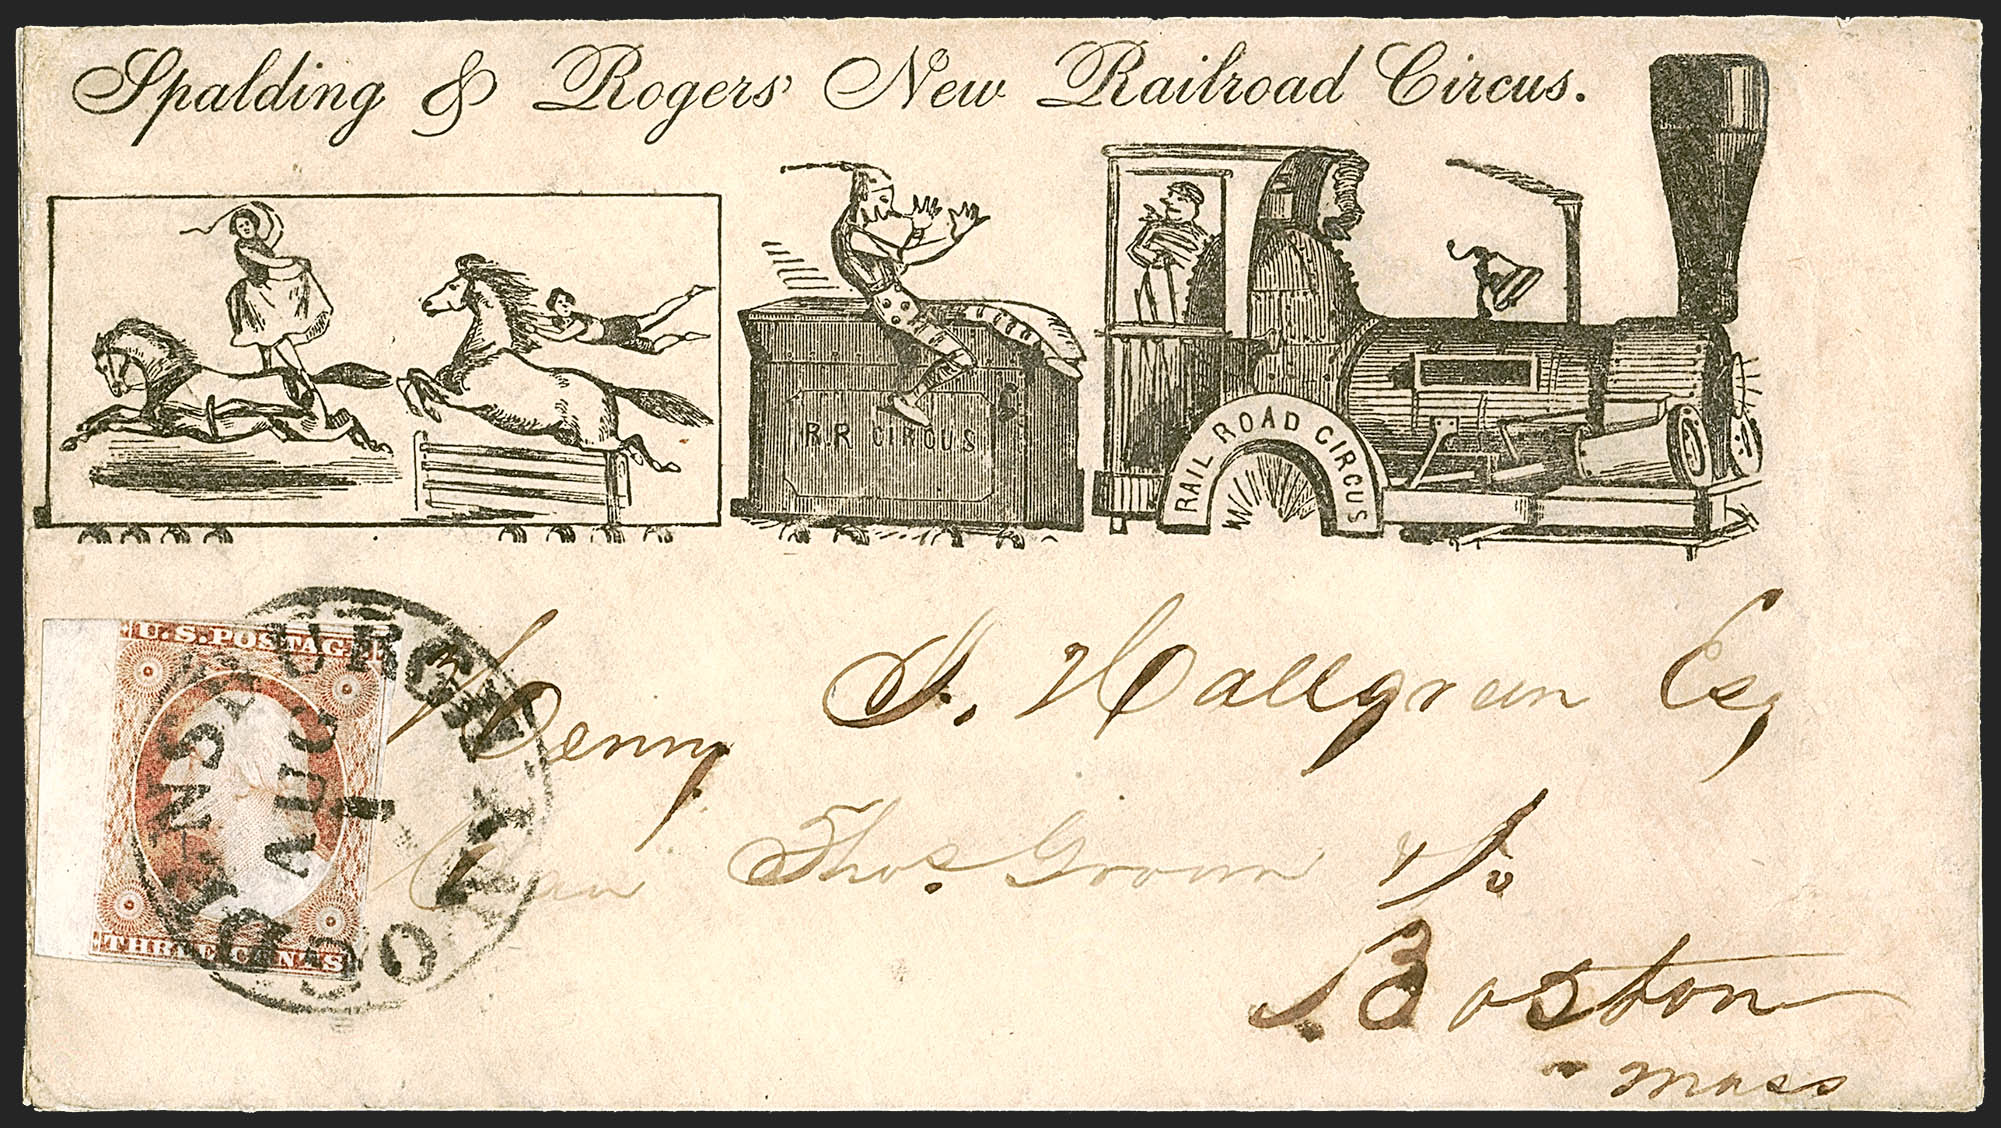 Spalding & Rogers' New Railroad Circus.
R.R CIRCUS
RAIL ROAD CIRCUS
U.S. POSTAGE
THREE CENTS
OGDENSBURGH N.Y.
AUG
1
Henry S. Hallgreen Esq
Care Thos. Groom & Co
Boston
Mass